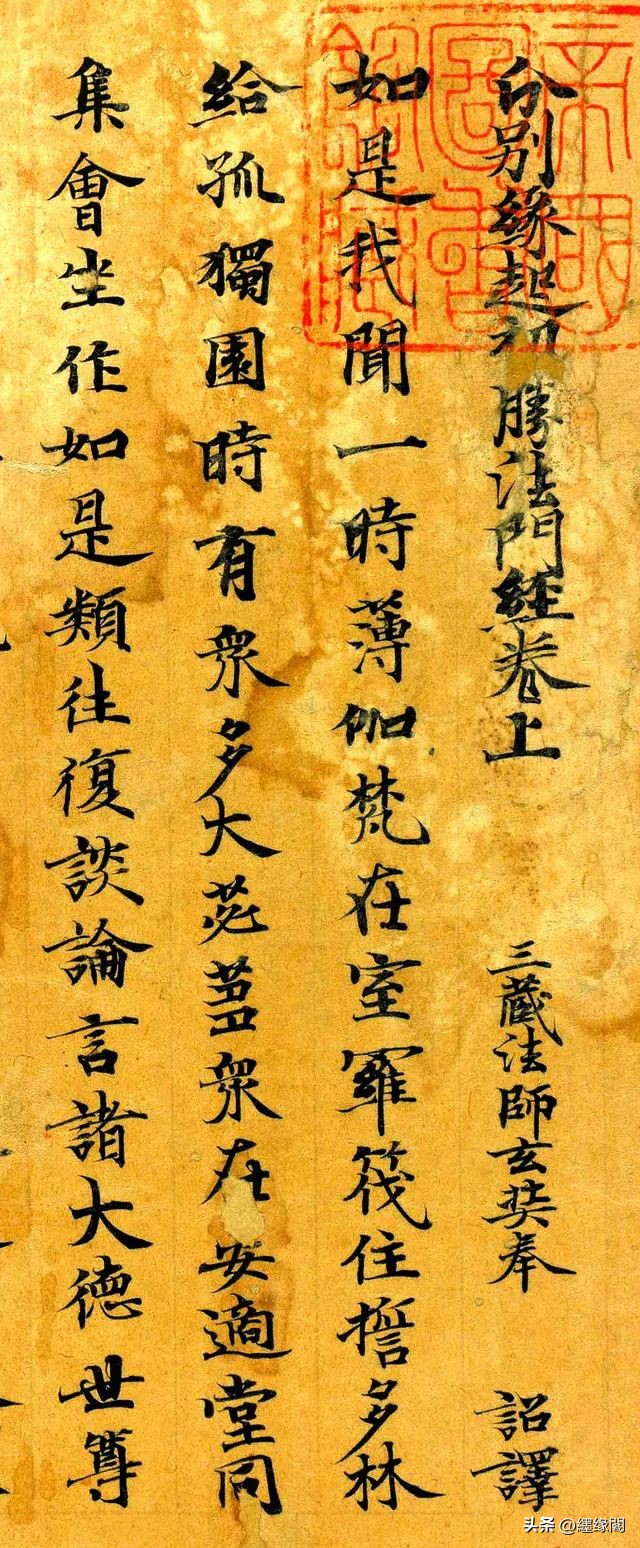 分别緣起初勝法門經卷上 三藏法師玄奘奉 詔譯
如是我聞一時薄伽梵在室羅筏住誓多林
給孤獨園時有衆多大苾蒭衆在安適堂同
集會坐作如是類往復談論言諸大德世尊
头条 @纆缘閣